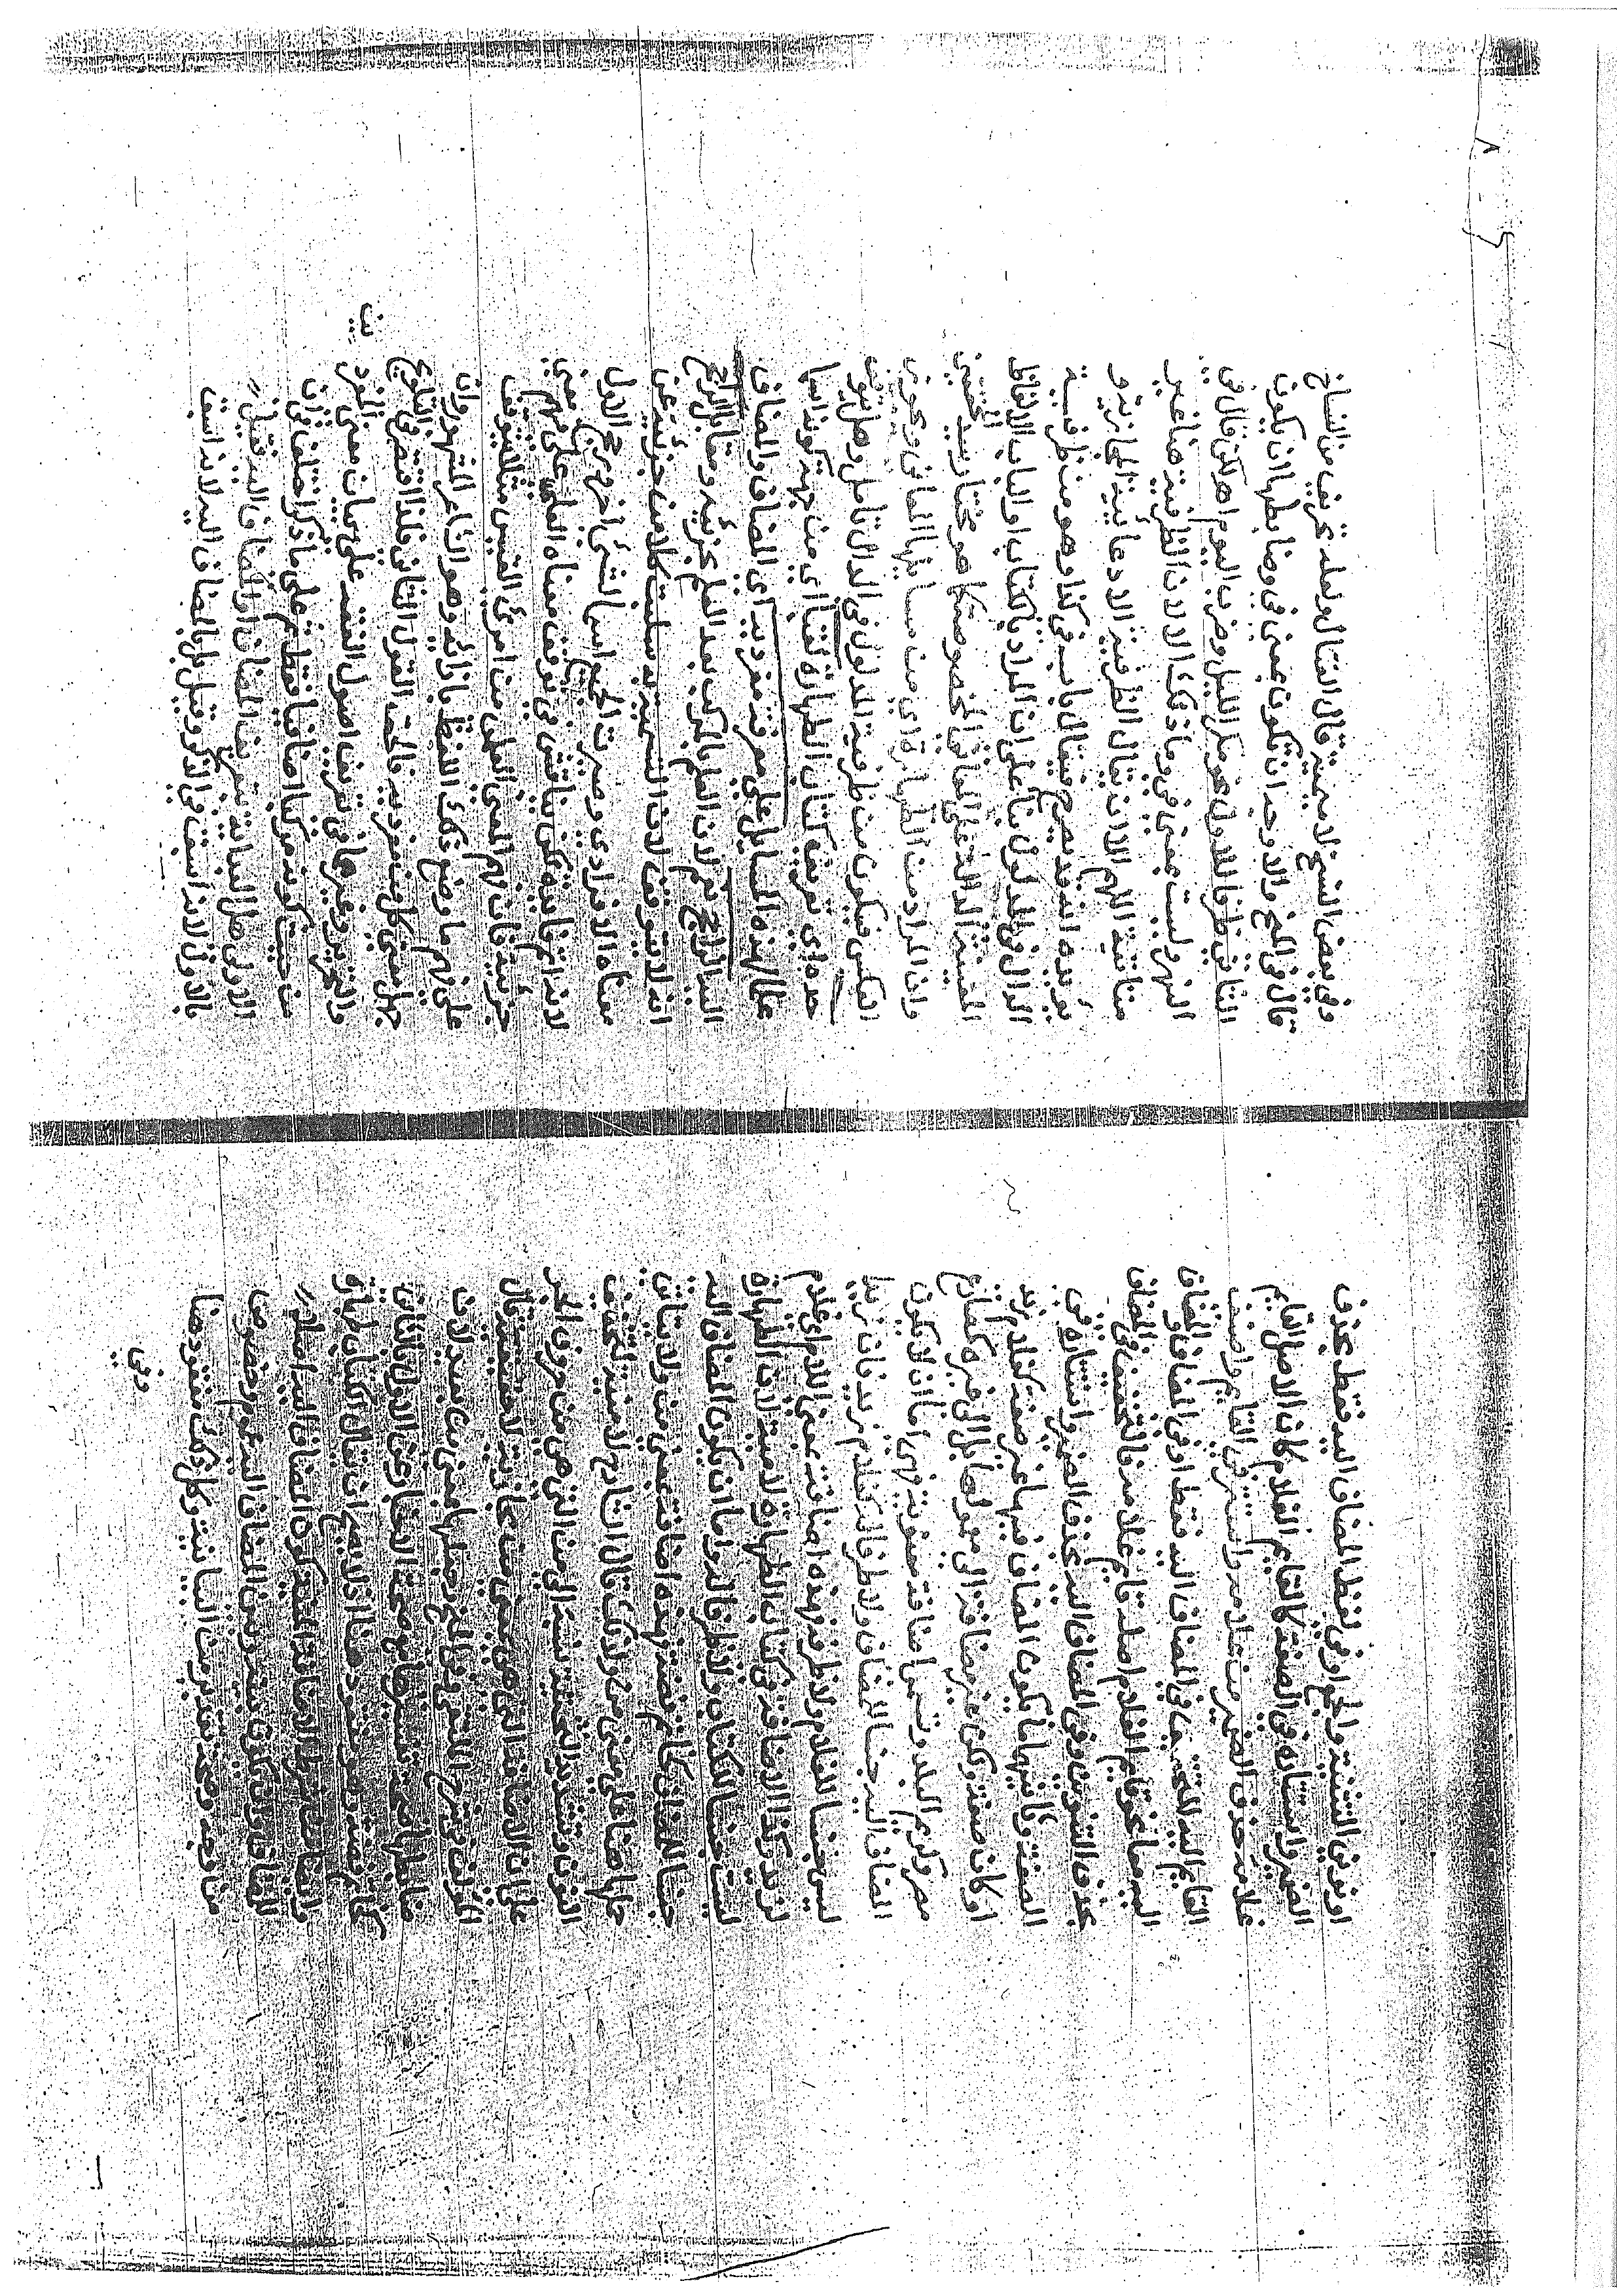 او نونى التثنية والجمع او فى لفظ المضاف اليه فقط بحذف
الضمير واستتاره فى الصفة كالقايم الغلام كان الاصل القايم
غلامه حذف الضمير من غلامه واستتر فى القايم واضيف
القايم اليه للتخفيف فى المضاف اليه فقط او فى المضاف والمضاف
اليه معا نحو قايم الغلام اصله قايم غلامه فالتخفيف فى المضاف
بحذف التنوين وفى المضاف اليه بحذف الضمير واستتاره فى
الصفة وثانيهما ما يكون المضاف فيها غير صفة كغلام زيد
او كان صفة ولكن غير مضافة الى معمولها بل الى غيره
مصر وكريم البلد وتسمى اضافة معنوية فهى اما ان لا يكون
المضاف اليه جنسا للمضاف ولا ظرفا له كغلام زيد فان زيدا
ليس جنسا للغلام ولا ظرفه فهذه اضافة بمعنى اللام اى غلام
لزيد وكذا الاضافة فى كتاب الطهارة لامية لان الطهارة
ليست جنسا للكتاب ولا ظرفا له واما ان يكون المضاف اليه
جنسا للمضاف كخاتم فضة فهذه اضافة بمعنى من ولا يتاتى
حملها هنا على معنى من ولذلك قال الشارح لا منية بتخفيف
النون وتشديد التحتية نسبة الى من التى هى من حروف الجر
على ان الاضافة التى هى بمعنى من مجازية لا حقيقة قال
المولف فى شرح الملتقى وفى المنح وجعلها بمعنى من بعيد لان
ضابطها صحة تفسيرها مع صحة الاخبار عن الاول بالثانى
كخاتم فضة وهو مفقود هنا اذ لا يصح ان يقال الكتاب طهارة
وايضا من شرط الاضافة البيانية كون المضاف اليه اصلا
للمضاف وان يكون بينه وبين المضاف اليه عموم وخصوص
من وجه وصحة تقدير من البيانية وكل ذلك مفقود هنا
وفى
وفى بعض النسخ لا ميمية قال الفتال ولعله تحريف من النساخ
قال فى المنح والاوجه ان تكون بمعنى فى وضابطها ان يكون
الثانى ظرفا للاول نحو مكر الليل وضرب اليوم اهـ لكن قال فى
النهر وليست بمعنى فى وما ذاك الا لان الظرفية هنا غير
متاتية اللهم الا ان يقال الظرفية الادعائية المجازية و
يؤيده انه قد يصرح فيقال باب فى كذا وهو من ظرفية
الدال فى المدلول بناء على ان المراد بالكتاب او الباب الالفاظ
المعينة الدالة على المعانى المخصوصة كما هو مختار سيد المحققين
وان المراد من الطهارة اى من مسايلها المعانى ويجوز
العكس فيكون من ظرفية المدلول فى الدال تامل وهل يتوقف
حده اى تعريف كتاب الطهارة لقبا اى من جهة كونه اسما
علما لهذه المسايل على معرفة مفرديه اى المضاف والمضاف
اليه الراجح نعم لان العلم بالمركب بعد العلم بجزئيه ومقابل الراجح
انه لا يتوقف لان التسمية به سلبت كلا من جزئيه عن
معناه الافرادى وصيرت الجميع اسما لشئ اخر ورجح الاول
لانه اتم فايدة لكن يناقش فى توقف معناه العلمى على فهم معنى
جزئيه فان فهم المعنى العلمى من امرئ القيس مثلا يتوقف
على فهم ما وضع ذلك اللفظ بازائه وهو الشاعر المشهور وان
جهل معنى كل من مفرديه فالحق القول الثانى فلذا اقتصر فى التلويح
والتحرير وغيرهما فى تعريف اصول الفقه على بيان معنى المفردين
من حيث كونه مركبا اضافيا فقط ثم على ما ذكر اختلف فى ان
الاولى هل البداية بتعريف المضاف او المضاف اليه فقيل
بالاول لانه اسبق فى الذكر وقيل بل بالمضاف اليه لانه اسبق